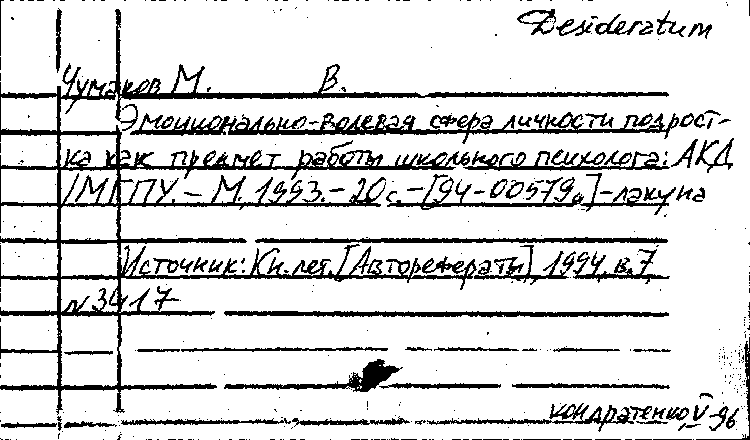 Desideratum
Чумаков М. В.
Эмоционально-волевая сфера личности подрост-
ка как предмет работы школьного психолога: АКД
/МГПУ. – М, 1993. – 20с. – [94-00579а] – лакуна
Источник: Кн. лет. [Авторефераты], 1994, в. 7,
N 3417
Кондратенко, V-96